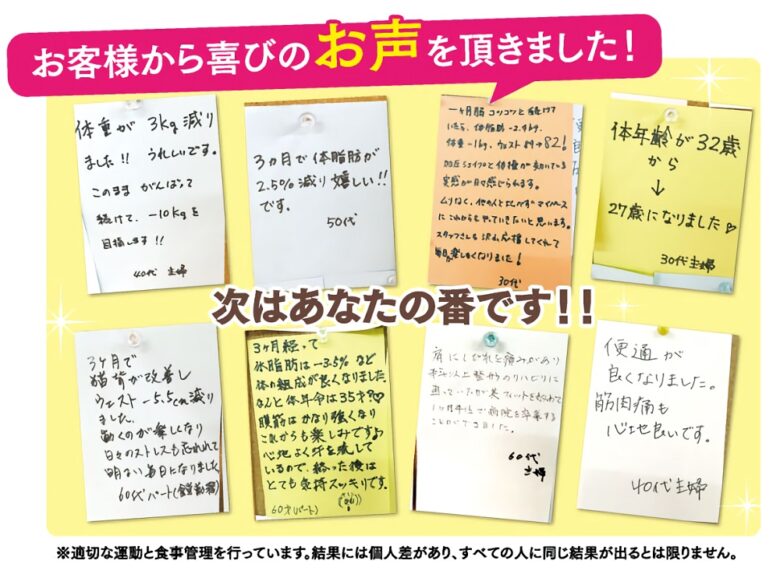 お客様から喜びのお声を頂きました!
体重が 3kg減り
ました!! うれしいです。
このまま がんばって
続けて、-10kgを
目指します!!
40代 主婦
3ヵ月で体脂肪が
2.5%減り嬉しい!!
です。
50代
一ヶ月間コツコツと続けて
体重 -1kg、ウエスト 89→82!
実感が日々感じられます。
にこれからもやっていきたいと思います。
スタッフさんも沢山応援してくれて
毎日楽しくなりました!
30代
体年齢が32歳
から
↓
27歳になりました♡
30代主婦
次はあなたの番です!!
3ヶ月で
猫背が改善し
ウェスト -5.5cm減り
ました。
動くのが楽しくなり
日々のストレスも忘れられて
明るい毎日になりました
60代パート
3ヶ月経って
体脂肪は-3.5%など
体の組成が良くなりました
なんと体年令は35才?♡
腹筋はかなり強くなり
これからも楽しみです♪
心地よく汗を流して
いるので、終った後は
とても気持スッキリです。
60才(パート)
肩にしびれと痛みがあり
1ヶ月半位で病院を卒業する
ことができました。
60代
主婦
便通が
良くなりました。
筋肉痛も
心地良いです。
40代主婦
※適切な運動と食事管理を行っています。結果には個人差があり、すべての人に同じ結果が出るとは限りません。